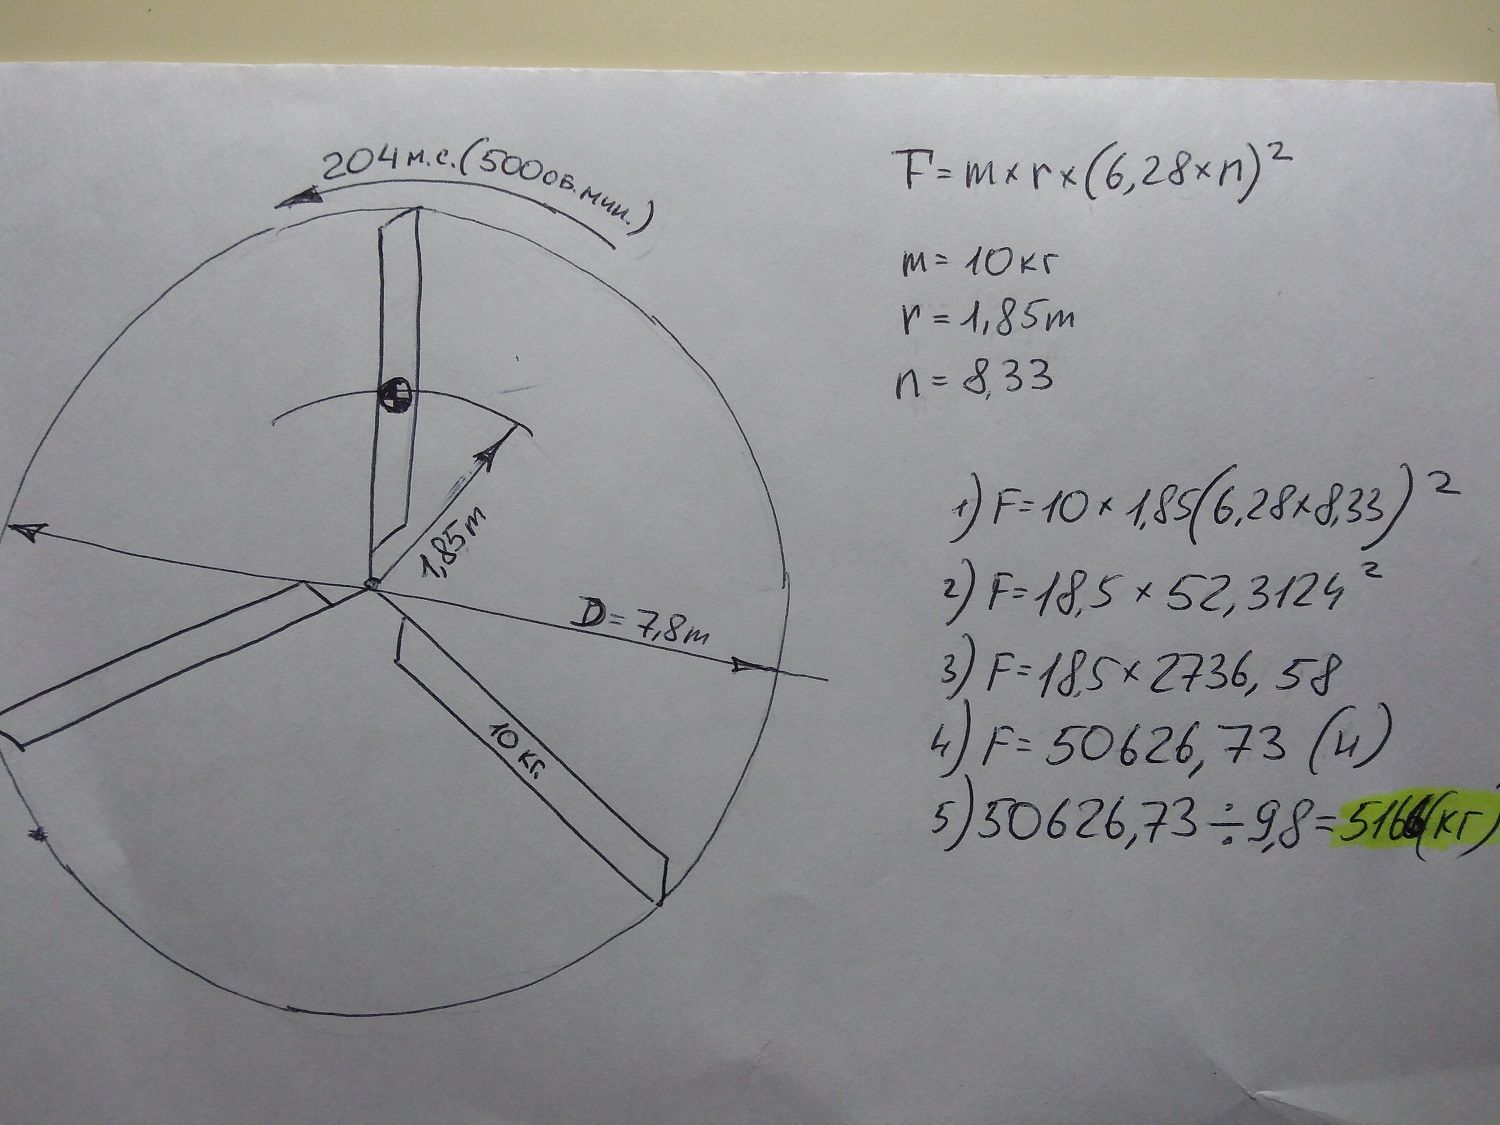 204 м.с. (500 об. мин.)
1,85m
D = 7,8m
10 кг.
F = m × r × (6,28 × n)²
m = 10кг
r = 1,85m
n = 8,33
1) F = 10 × 1,85(6,28 × 8,33)²
2) F = 18,5 × 52,3124²
3) F = 18,5 × 2736,58
4) F = 50626,73 (н)
5) 50626,73 ÷ 9,8 = 5166(кг)